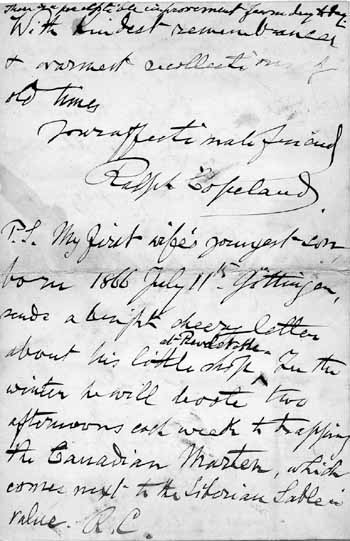 there is perceptible improvement from day to day.
With kindest remembrances
& warmest recollections of
old times
Your affectionate friend
Ralph Copeland
P.S. My first wife's youngest son,
born 1866 July 11th Göttingen,
sends a bright cheery letter
about his little shop In the
winter he will devote two
afternoons each week to trapping
the Canadian Marten, which
comes next to the Siberian Sable in
value. R.C.